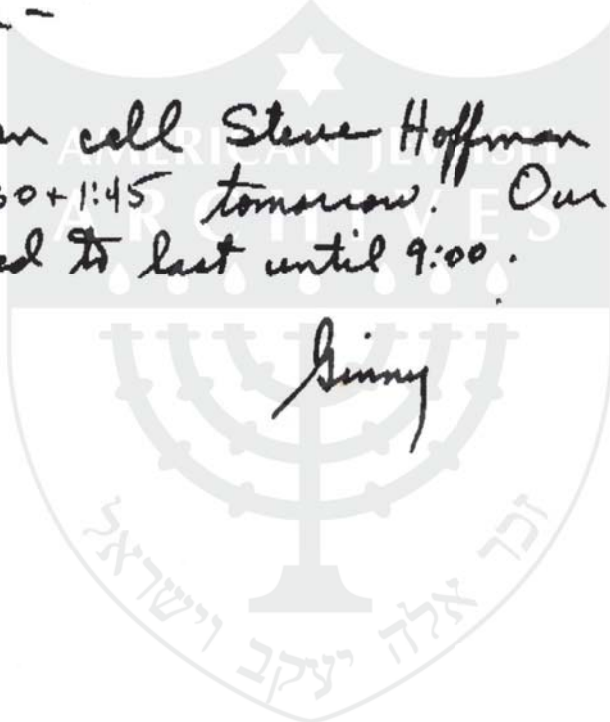 n call Steve Hoffman
30 + 1:45 tomorrow. Our
ed to last until 9:00.
Ginny
AMERICAN JEWISH
ARCHIVES
זכר אלה יעקב וישראל